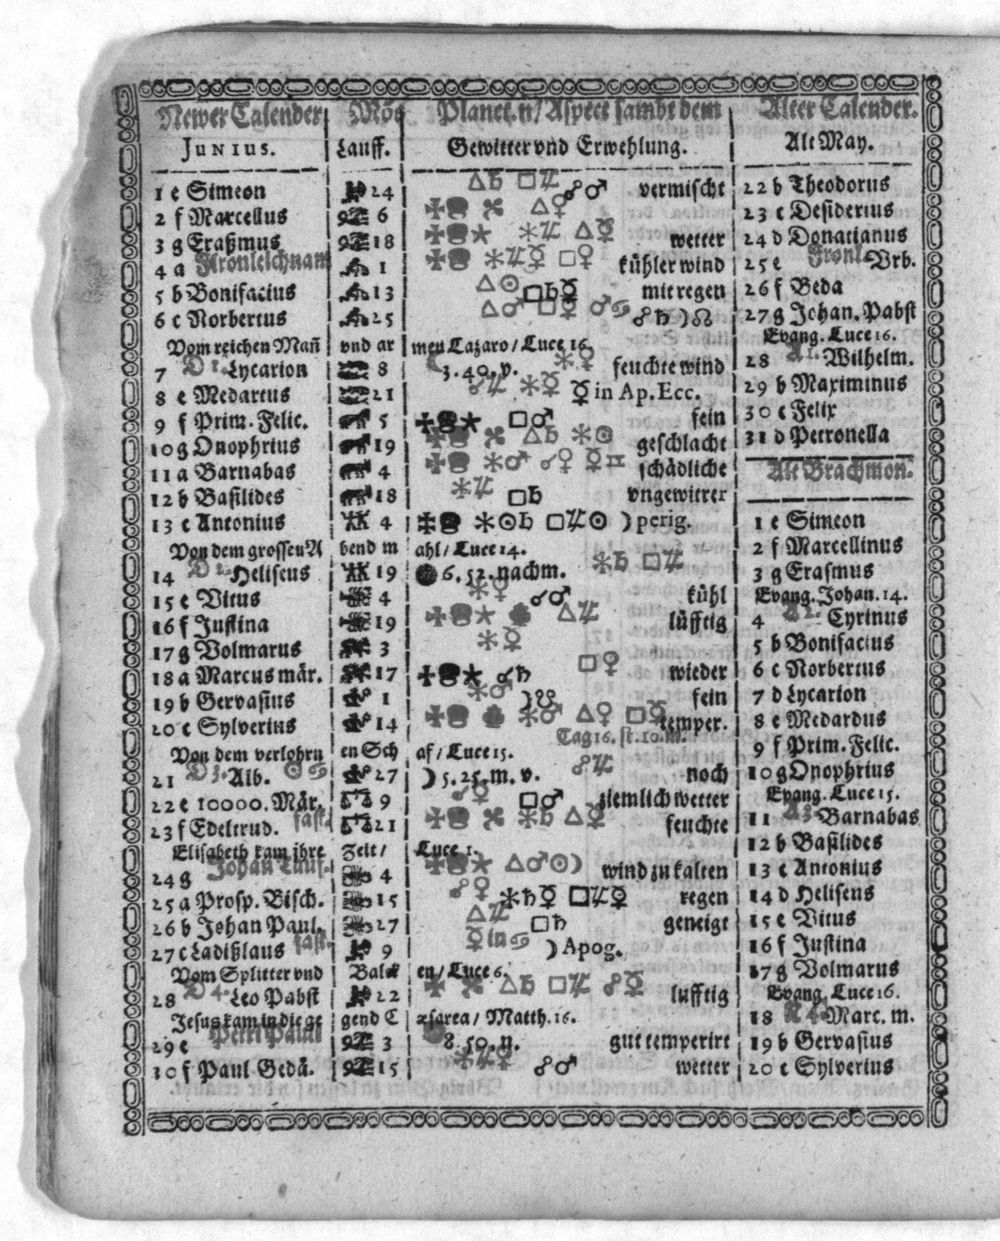 Newer Calender Mõs Planet.n/ Aspect sambt dem Alter Calender.
JUNIUS. Lauff. Gewitter vnd Erwehlung. Alt May.
1 e Simeon 24 △♄ □♃ ☍♂ vermischt 22 b Theodorus
2 f Marcellus 6 △♀ 23 c Desiderius
3 g Eraßmus 18 ✶♃ △☿ wetter 24 d Donatianus
4 a Fronleichnam 1 ✶♃☿ □♀ kühler wind 25 e Fronl. Vrb.
5 b Bonifacius 13 △☉ □♄☿ mit regen 26 f Beda
6 c Norbertus 25 △♂ □☿ ☍♄ ☽☊ 27 g Johan. Pabst
Vom reichen Mañ vnd ar men Lazaro/ Luce 16. Evang. Luce 16.
7 D 1. Lycarion 8 3.40. v. ✶♀ feuchte wind 28 A 1. Wilhelm.
8 e Medartus 21 ☍♃ ✶☿ ☿ in Ap. Ecc. 29 b Maximinus
9 f Prim. Felic. 5 □♂ fein 30 c Felix
10 g Onophrius 19 △♄ ✶☉ geschlacht 31 d Petronella
11 a Barnabas 4 ✶♂ ☌♀ ☿♊ schädliche Alt Brachmon.
12 b Basilides 18 ✶♃ □♄ vngewitter
13 c Antonius 4 ✶☉♄ □♃☉ ☽ perig. 1 e Simeon
Von dem grossen A bend m ahl/ Luce 14. 2 f Marcellinus
14 D 2. Heliseus 19 6.52. nachm. ✶♄ □♃ 3 g Erasmus
15 e Vitus 4 ✶♀ ☌♂ kühl Evang. Johan. 14.
16 f Justina 19 △♃ lüfftig 4 A 2. Cyrinus
17 g Volmarus 3 ✶☿ 5 b Bonifacius
18 a Marcus mär. 17 ☌♄ □♀ wieder 6 c Norbertus
19 b Gervasius 1 ✶♂ ☽☋ fein 7 d Lycarion
20 c Sylverius 14 ✶♂ △♀ □☿ temper. 8 e Medardus
Tag 16. st. 10. M.
Von dem verlohrn en Sch af/ Luce 15. 9 f Prim. Felic.
21 D 3. Alb. ☉♋ 27 ☽ 5.25. m. v. ☍♃ noch 10 g Onophrius
22 e 10000. Mär. 9 ☌☿ □♂ ziemlich wetter Evang. Luce 15.
23 f Edeltrud. fast. 21 ✶♄ △☿ feuchte 11 A 3. Barnabas
Elisabeth kam ihre Zeit/ Luce 1. 12 b Basilides
24 g Johan Tauf. 4 △♂☉☽ wind zu kalten 13 c Antonius
25 a Prosp. Bisch. 15 ☍♀ ✶♄☿ □♃♀ regen 14 d Heliseus
26 b Johan Paul. 27 △♃ □♄ geneigt 15 e Vitus
27 c Ladißlaus fast. 9 ☿ in ♋ ☽ Apog. 16 f Justina
Vom Splitter vnd Balck en/ Luce 6. 17 g Volmarus
28 D 4. Leo Pabst 22 △♄ □♃ ☍☿ lufftig Evang. Luce 16.
Jesus kam in die ge gend C æsarea/ Matth. 16. 18 A 4. Marc. m.
29 e Petri Pauli 3 8.50. n. gut temperirt 19 b Gervasius
30 f Paul Gedä. 15 ✶♃☿ ☍♂ wetter 20 c Sylverius